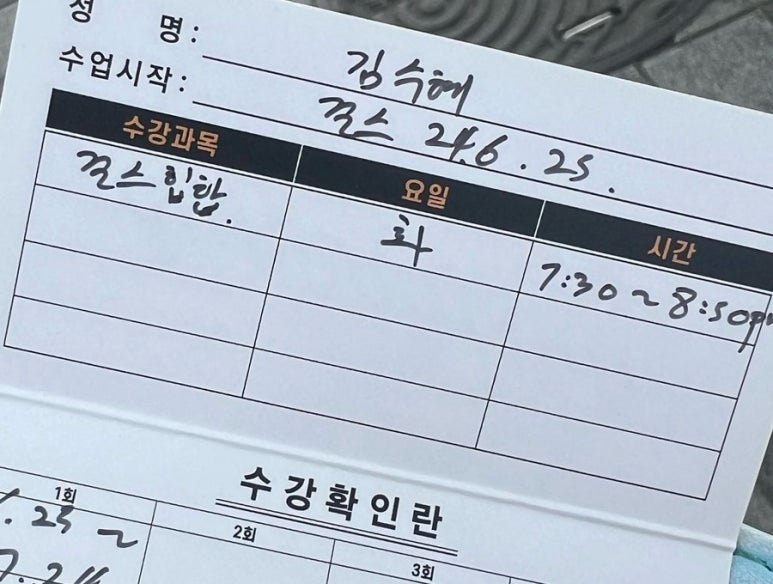 성 명 : 김수혜
수업시작 : 걸스 24.6.25.
수강과목 요일 시간
걸스힙합. 화 7:30~8:50pm
수강확인란
1회 2회 3회
.25~
7.24